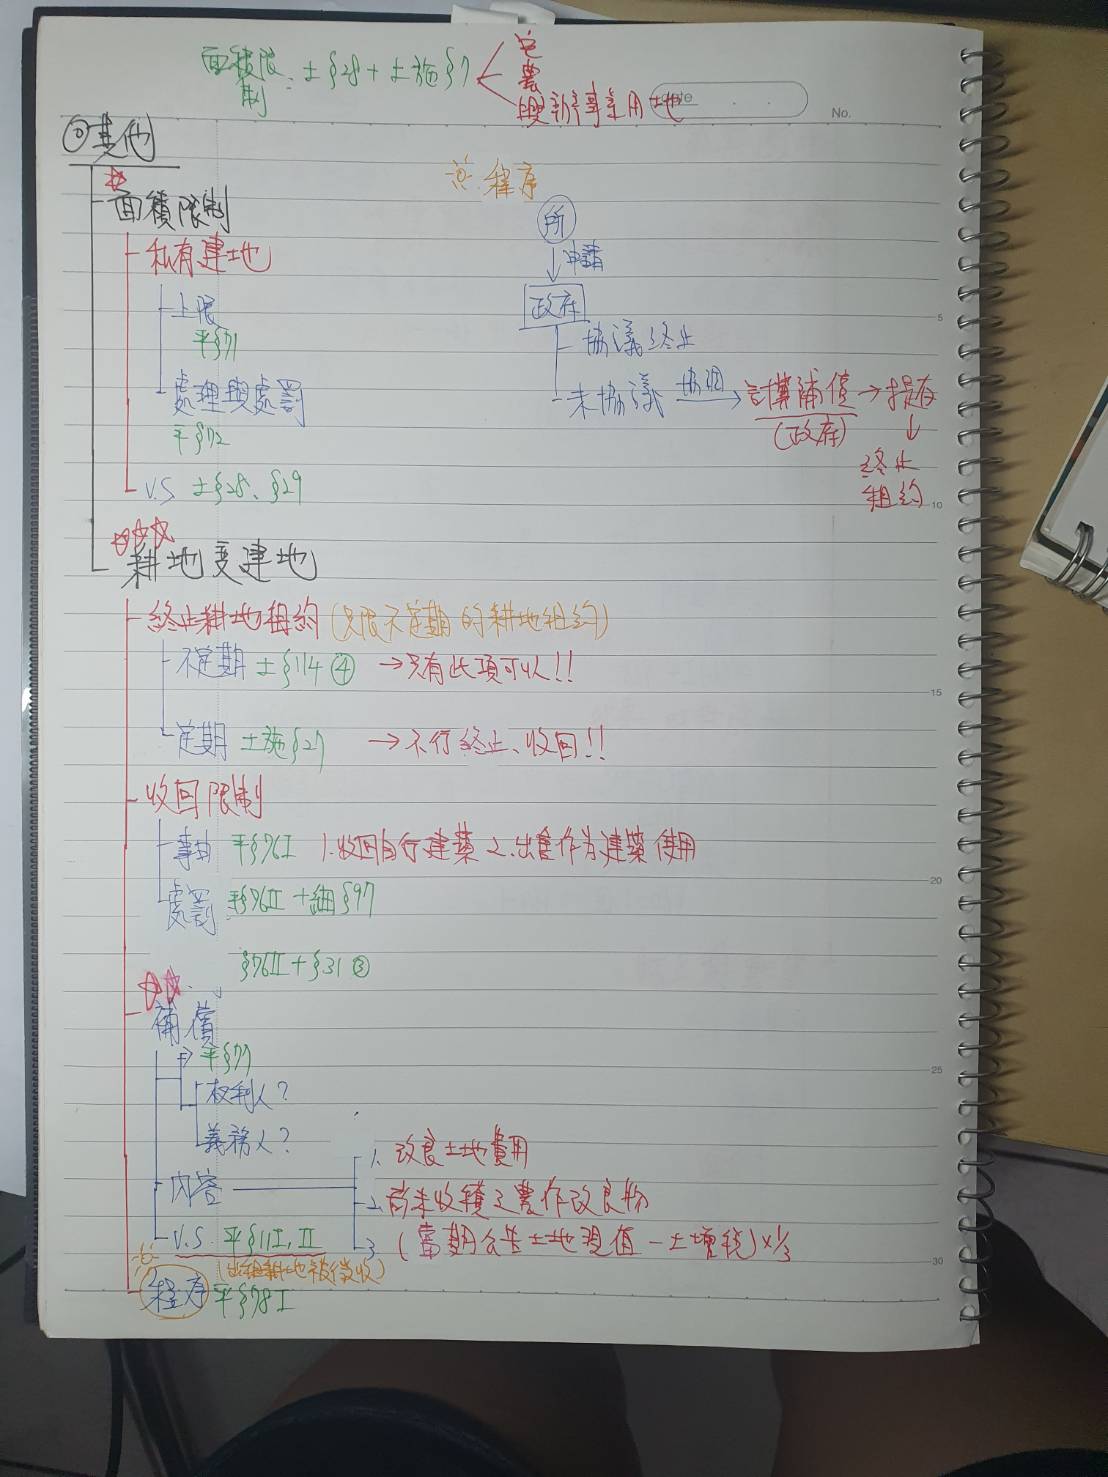 面積限制：土§28+土施§7
宅
農
興辦事業用地
Date
No.
其他
面積限制
私有建地
上限
平§71
處理與處罰
平§72
V.S 土§28、§29
程序
所
申請
政府
協議終止
未協議 協調 → 計算補償 → 提存
(政府)
終止
租約
耕地變建地
終止耕地租約(只限不定期的耕地租約)
不定期 土§114④ →只有此項可以!!
定期 土施§27 →不行終止、收回!!
收回限制
事由 平§76I 1.收回自行建築 2.出售作為建築使用
處罰 平§76II+細§97
§76II+§31③
補償
平§77
權利人?
義務人?
內容
1. 改良土地費用
2.尚未收穫之農作改良物
3 (當期公告土地現值－土增稅)×1/3
V.S 平§11I,II
(出租耕地被徵收)
程序 平§78I
5
10
15
20
25
30